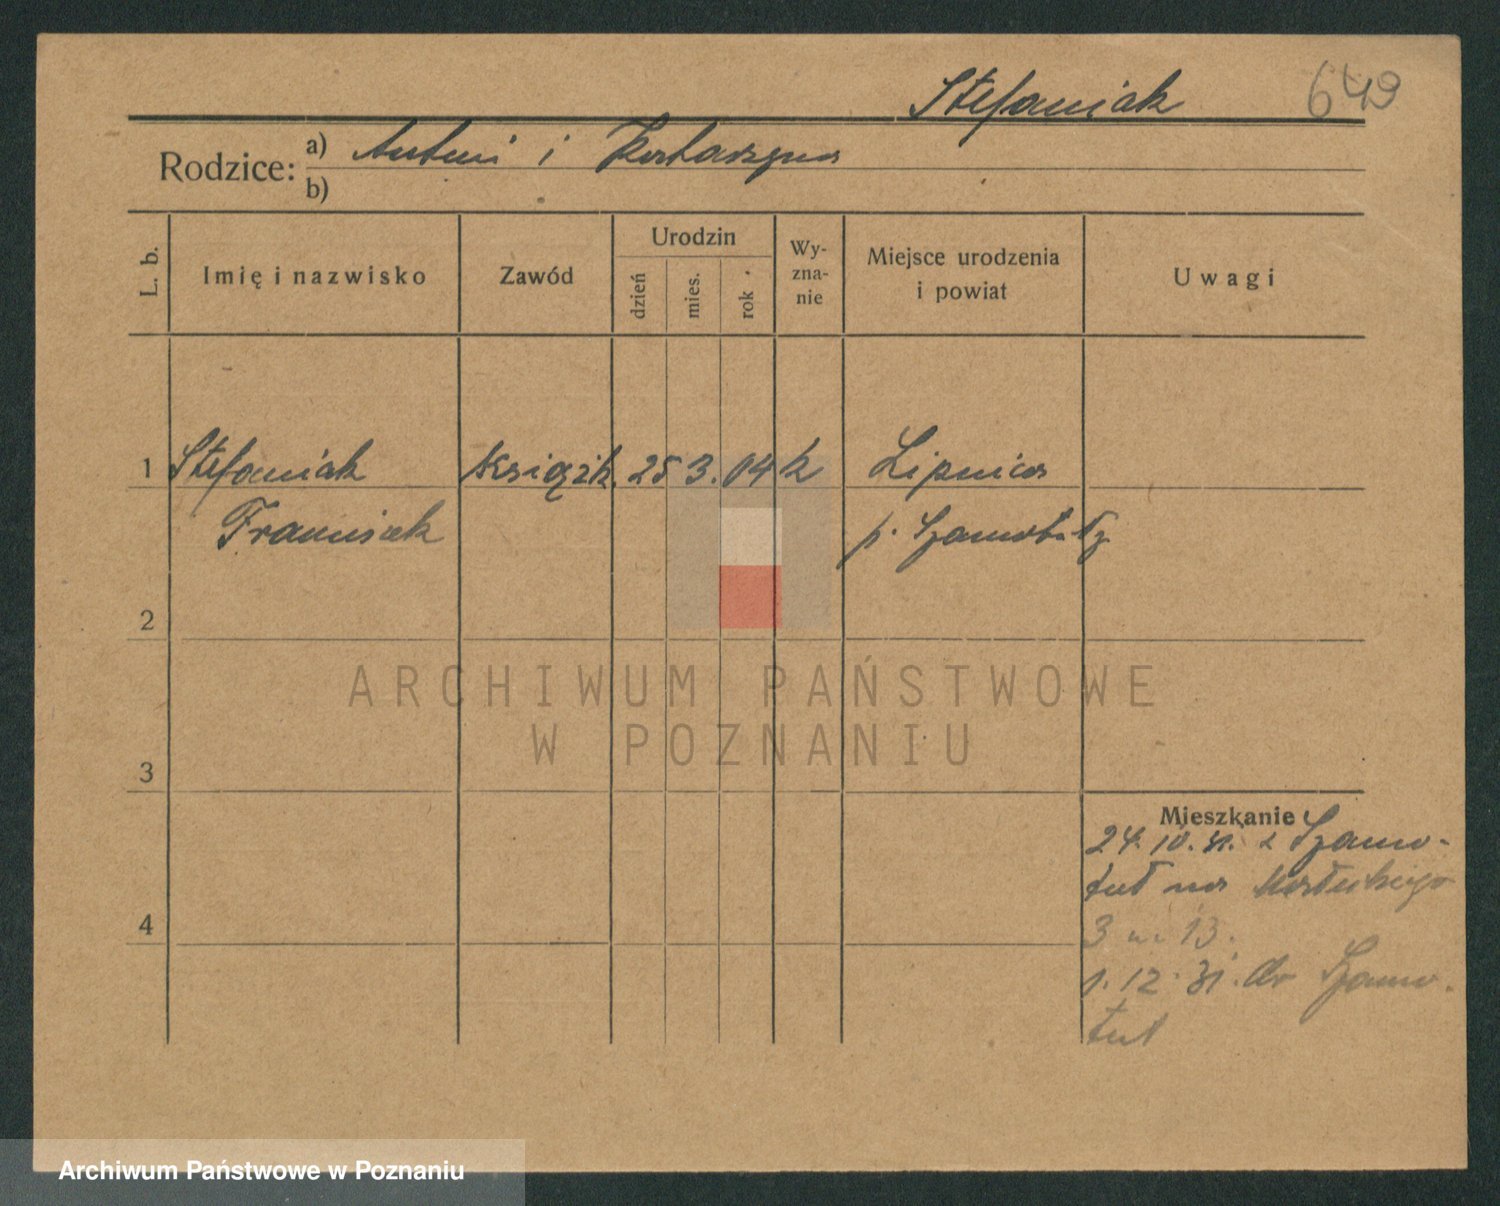 Stefaniak
649
Rodzice: a) Antoni i Katarzyna
b)
L. b.
Imię i nazwisko
Zawód
Urodzin
dzień
mies.
rok
Wy-
zna-
nie
Miejsce urodzenia
i powiat
Uwagi
1 Stefaniak 25 3. 04 k Lipnica
Franciszek p. Szamotuły
2
ARCHIWUM PAŃSTWOWE
W POZNANIU
3
Mieszkanie
24. 10. 31. z Szamo-
tuł na
4
3 m. 13.
1. 12. 31. do Szamo-
tuł
Archiwum Państwowe w Poznaniu